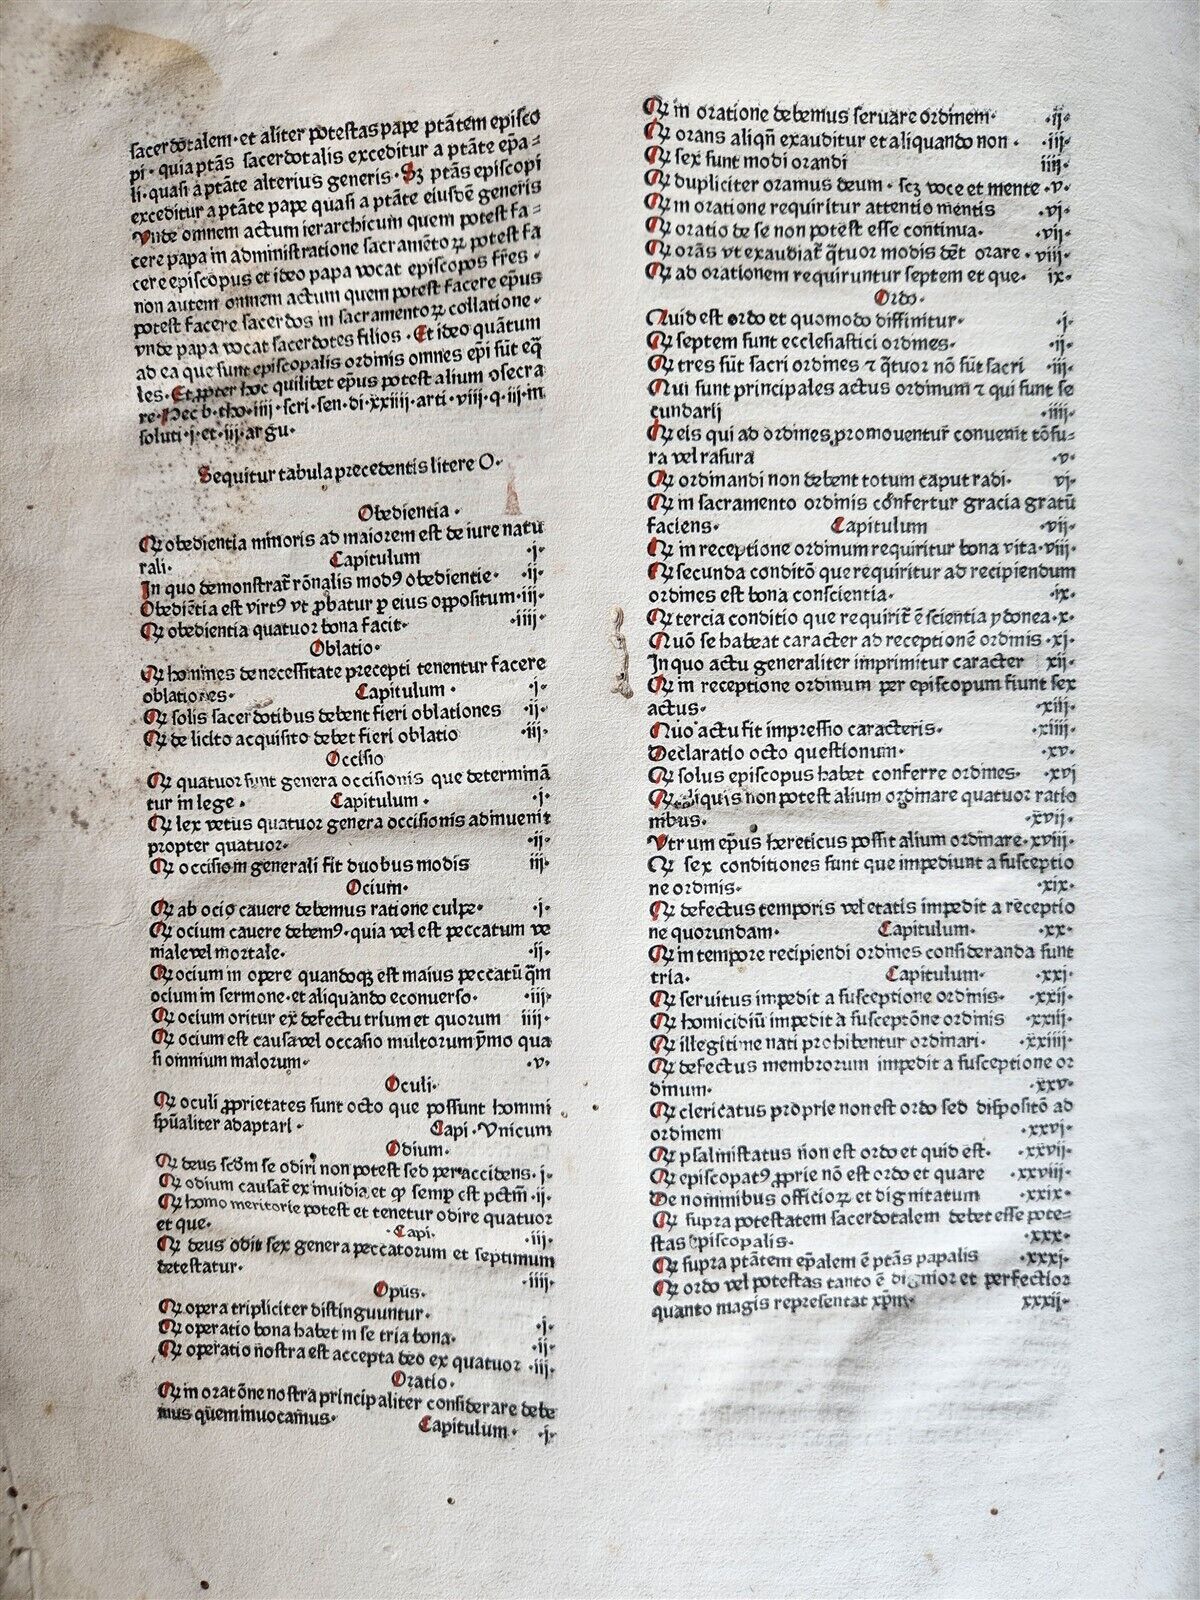 sacerdotalem·et aliter potestas pape ptãtem episco
pi·quia ptãs sacerdotalis exceditur a ptãte ep̃a=
li·quasi a ptãte alterius generis·Sꝫ ptãs episcopi
exceditur a ptãte pape quasi a ptãte eiusdẽ generis
Vnde omnem actum ierarchicum quem potest fa=
cere papa in administratione sacramẽtoꝝ potest fa
cere episcopus et ideo papa vocat episcopos fr̃es·
non autem omnem actum quem potest facere ep̃us
potest facere sacerdos in sacramentoꝝ collatione·
vnde papa vocat sacerdotes filios·Et ideo quãtum
ad ea que sunt episcopalis ordinis omnes ep̃i sũt eq̃
les·Et ꝓpter hoc quilibet ep̃us potest alium ↄsecra
re·Hec b·tho·iiij·scri·sen·di·xxiiij·arti·viij·q·iij·in
soluti·j·et·iij·argu·
Sequitur tabula precedentis litere O·
Obedientia·
Qꝛ obedientia minoris ad maiorem est de iure natu
rali· Capitulum ·j·
In quo demonstrat᷑ rõnalis modꝰ obedientie· ·ij·
Obediẽtia est virtꝰ vt ꝓbatur ꝑ eius oppositum·iij·
Qꝛ obedientia quatuor bona facit· ·iiij·
Oblatio·
Qꝛ homines de necessitate precepti tenentur facere
oblationes· Capitulum· ·j·
Qꝛ solis sacerdotibus debent fieri oblationes ·ij·
Qꝛ de licito acquisito debet fieri oblatio ·iij·
Occisio
Qꝛ quatuor sunt genera occisionis que determinã
tur in lege· Capitulum· ·j·
Qꝛ lex vetus quatuor genera occisionis adinuenit
propter quatuor· ·ij·
Qꝛ occisio in generali fit duobus modis iij·
Ocium·
Qꝛ ab ocio cauere debemus ratione culpe· ·j·
Qꝛ ocium cauere debemꝰ·quia vel est peccatum ve
niale vel mortale· ·ij·
Qꝛ ocium in opere quandoqꝫ est maius peccatũ q̃m
ocium in sermone·et aliquando econuerso· ·iij·
Qꝛ ocium oritur ex defectu trium et quorum iiij·
Qꝛ ocium est causa vel occasio multorum ỹmo qua
si omnium malorum· ·v·
Oculi·
Qꝛ oculi ꝓprietates sunt octo que possunt homini
sp̃ualiter adaptari· Capi·Vnicum
Odium·
Qꝛ deus scd̃m se odiri non potest sed per accidens·j·
Qꝛ odium causat᷑ ex inuidia et ꝙ semꝑ est pctm̃·ij·
Qꝛ homo meritorie potest et tenetur odire quatuor
et que· ·Capi· ·iij·
Qꝛ deus odit sex genera peccatorum et septimum
detestatur· ·iiij·
Opus·
Qꝛ opera tripliciter distinguuntur· ·j·
Qꝛ operatio bona habet in se tria bona· ·ij·
Qꝛ operatio nostra est accepta deo ex quatuor ·iij·
Oratio·
Qꝛ in oratõne nostra principaliter considerare debe
mus quem inuocamus· Capitulum· ·j·
Qꝛ in oratione debemus seruare ordinem· ·ij·
Qꝛ orans aliqñ exauditur et aliquando non· ·iij·
Qꝛ sex sunt modi orandi iiij·
Qꝛ dupliciter oramus deum·scꝫ voce et mente·v·
Qꝛ in oratione requiritur attentio mentis ·vj·
Qꝛ oratio de se non potest esse continua· ·vij·
Qꝛ orãs vt exaudiat᷑ q̃tuor modis dẽt orare·viij·
Qꝛ ad orationem requiruntur septem et que· ix·
Ordo·
Quid est ordo et quomodo diffinitur· ·j·
Qꝛ septem sunt ecclesiastici ordines· ·ij·
Qꝛ tres sũt sacri ordines ⁊ q̃tuor nõ sũt sacri ·iij·
Qui sunt principales actus ordinum ⁊ qui sunt se
cundarij ·iiij·
Qꝛ eis qui ad ordines promouentur conuenit tõsu=
ra vel rasura ·v·
Qꝛ ordinandi non debent totum caput radi· vj·
Qꝛ in sacramento ordinis confertur gracia gratũ
faciens· Capitulum ·vij·
Qꝛ in receptione ordinum requiritur bona vita·viij·
Qꝛ secunda conditõ que requiritur ad recipiendum
ordines est bona conscientia· ·ix·
Qꝛ tercia conditio que requirit᷑ ẽ scientia ydonea·x·
Quõ se habeat caracter ad receptionẽ ordinis·xj·
In quo actu generaliter imprimitur caracter xij·
Qꝛ in receptione ordinum per episcopum fiunt sex
actus· ·xiij·
Quo actu fit impressio caracteris· ·xiiij·
Declaratio octo questionum· ·xv·
Qꝛ solus episcopus habet conferre ordines· ·xvj
Qꝛ aliquis non potest alium ordinare quatuor ratio
nibus· ·xvij·
Vtrum ep̃us hereticus possit alium ordinare·xviij·
Qꝛ sex conditiones sunt que impediunt a susceptio
ne ordinis· ·xix·
Qꝛ defectus temporis vel etatis impedit a receptio
ne quorundam· Capitulum· ·xx·
Qꝛ in tempore recipiendi ordines consideranda sunt
tria· Capitulum· ·xxj·
Qꝛ seruitus impedit a susceptione ordinis· ·xxij·
Qꝛ homicidiũ impedit a susceptõne ordinis ·xxiij·
Qꝛ illegitime nati prohibentur ordinari· ·xxiiij·
Qꝛ defectus membrorum impedit a susceptione or
dinum· ·xxv·
Qꝛ clericatus proprie non est ordo sed dispositõ ad
ordinem ·xxvj·
Qꝛ psalmistatus non est ordo et quid est· ·xxvij·
Qꝛ episcopatꝰ ꝓprie nõ est ordo et quare ·xxviij·
De nominibus officioꝝ et dignitatum ·xxix·
Qꝛ supra potestatem sacerdotalem debet esse pote=
stas episcopalis· ·xxx·
Qꝛ supra ptãtem ep̃alem ẽ ptãs papalis ·xxxj·
Qꝛ ordo vel potestas tanto ẽ dignior et perfectior
quanto magis representat xp̃m· xxxij·